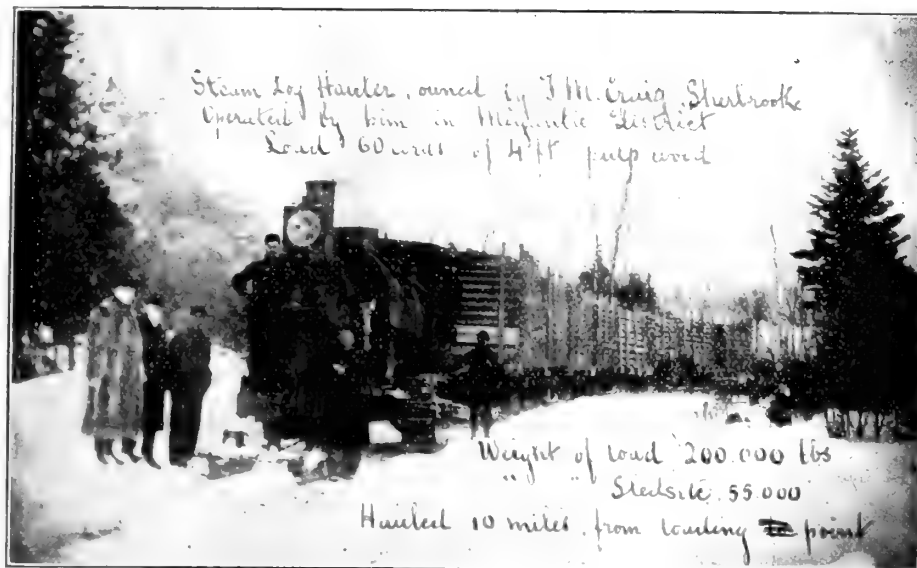 Steam Log Hauler, owned by F M. Craig, Sherbrooke
Operated by him in Megantic District
Load 60 cords of 4 ft pulp wood
Weight of load 200.000 lbs
" " Sleds etc. 55.000
Hauled 10 miles, from loading point